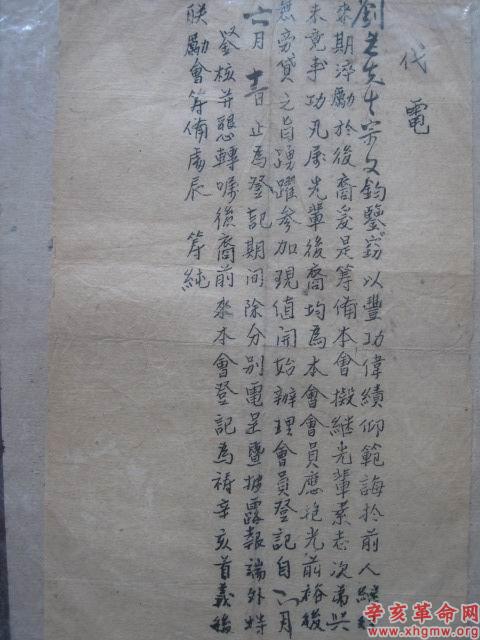 代電
劉老先生宗文鈞鑒竊以豐功偉績仰範誨於前人繼往
來期淬勵於後裔爰是籌備本會擬繼光輩素志次第與
未竟事功凡屬光輩後裔均為本會會員應抱光前裕後
無旁貸之旨踴躍參加現值開始辦理會員登記自六月
六月十二日止為登記期間除分別電呈暨披露報端外特
鑒核并懇轉囑後裔前來本會登記為禱辛亥首義後
聯勵會籌備處辰 等純
辛亥革命网
www.xhgmw.org